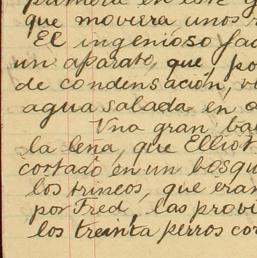 primera en este g
que moviera unos r
El ingenioso fac
un aparato, que po
de condensación, v
agua salada en d
Una gran ba
la lena, que Elliot
cortado en un bosqu
los trineos, que eran
por Fred, las provi
los treinta perros cor